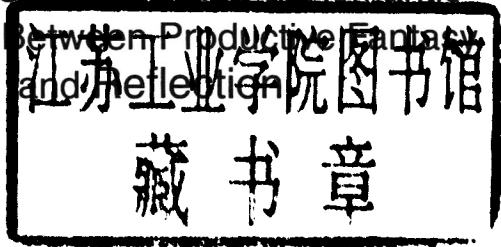 Between Productive Fantasy
and Reflection
江苏工业学院图书馆
藏书章